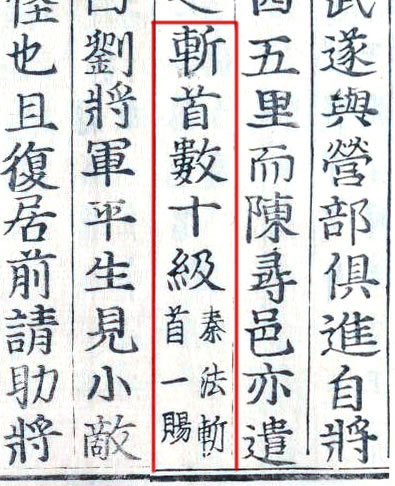 遂與營部俱進自將
五里而陳尋邑亦遣
斬首數十級秦法斬
首一賜
劉將軍平生見小敵
怪也且復居前請助將